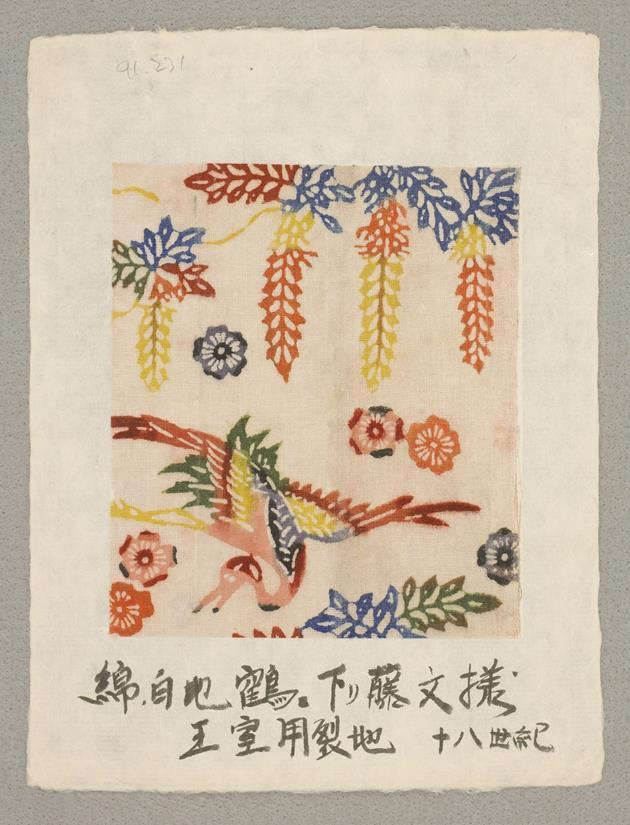 91.231
綿.白地 鶴。下り藤文様
王室用裂地 十八世紀